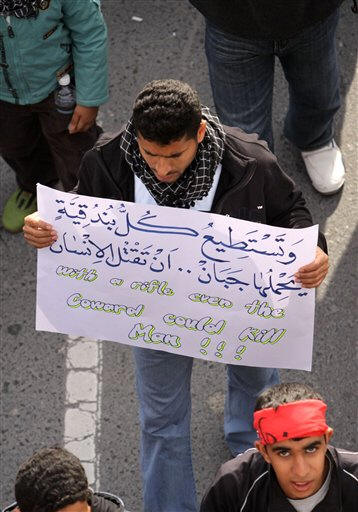 وَتَسْتَطِيعُ كُلُّ بُنْدُقِيَّةٍ
يَحْمِلُهَا جَبَانٌ .. أَنْ تَقْتُلَ الأنْسَانَ
with a rifle even the
Coward could kill
Man ! ! !